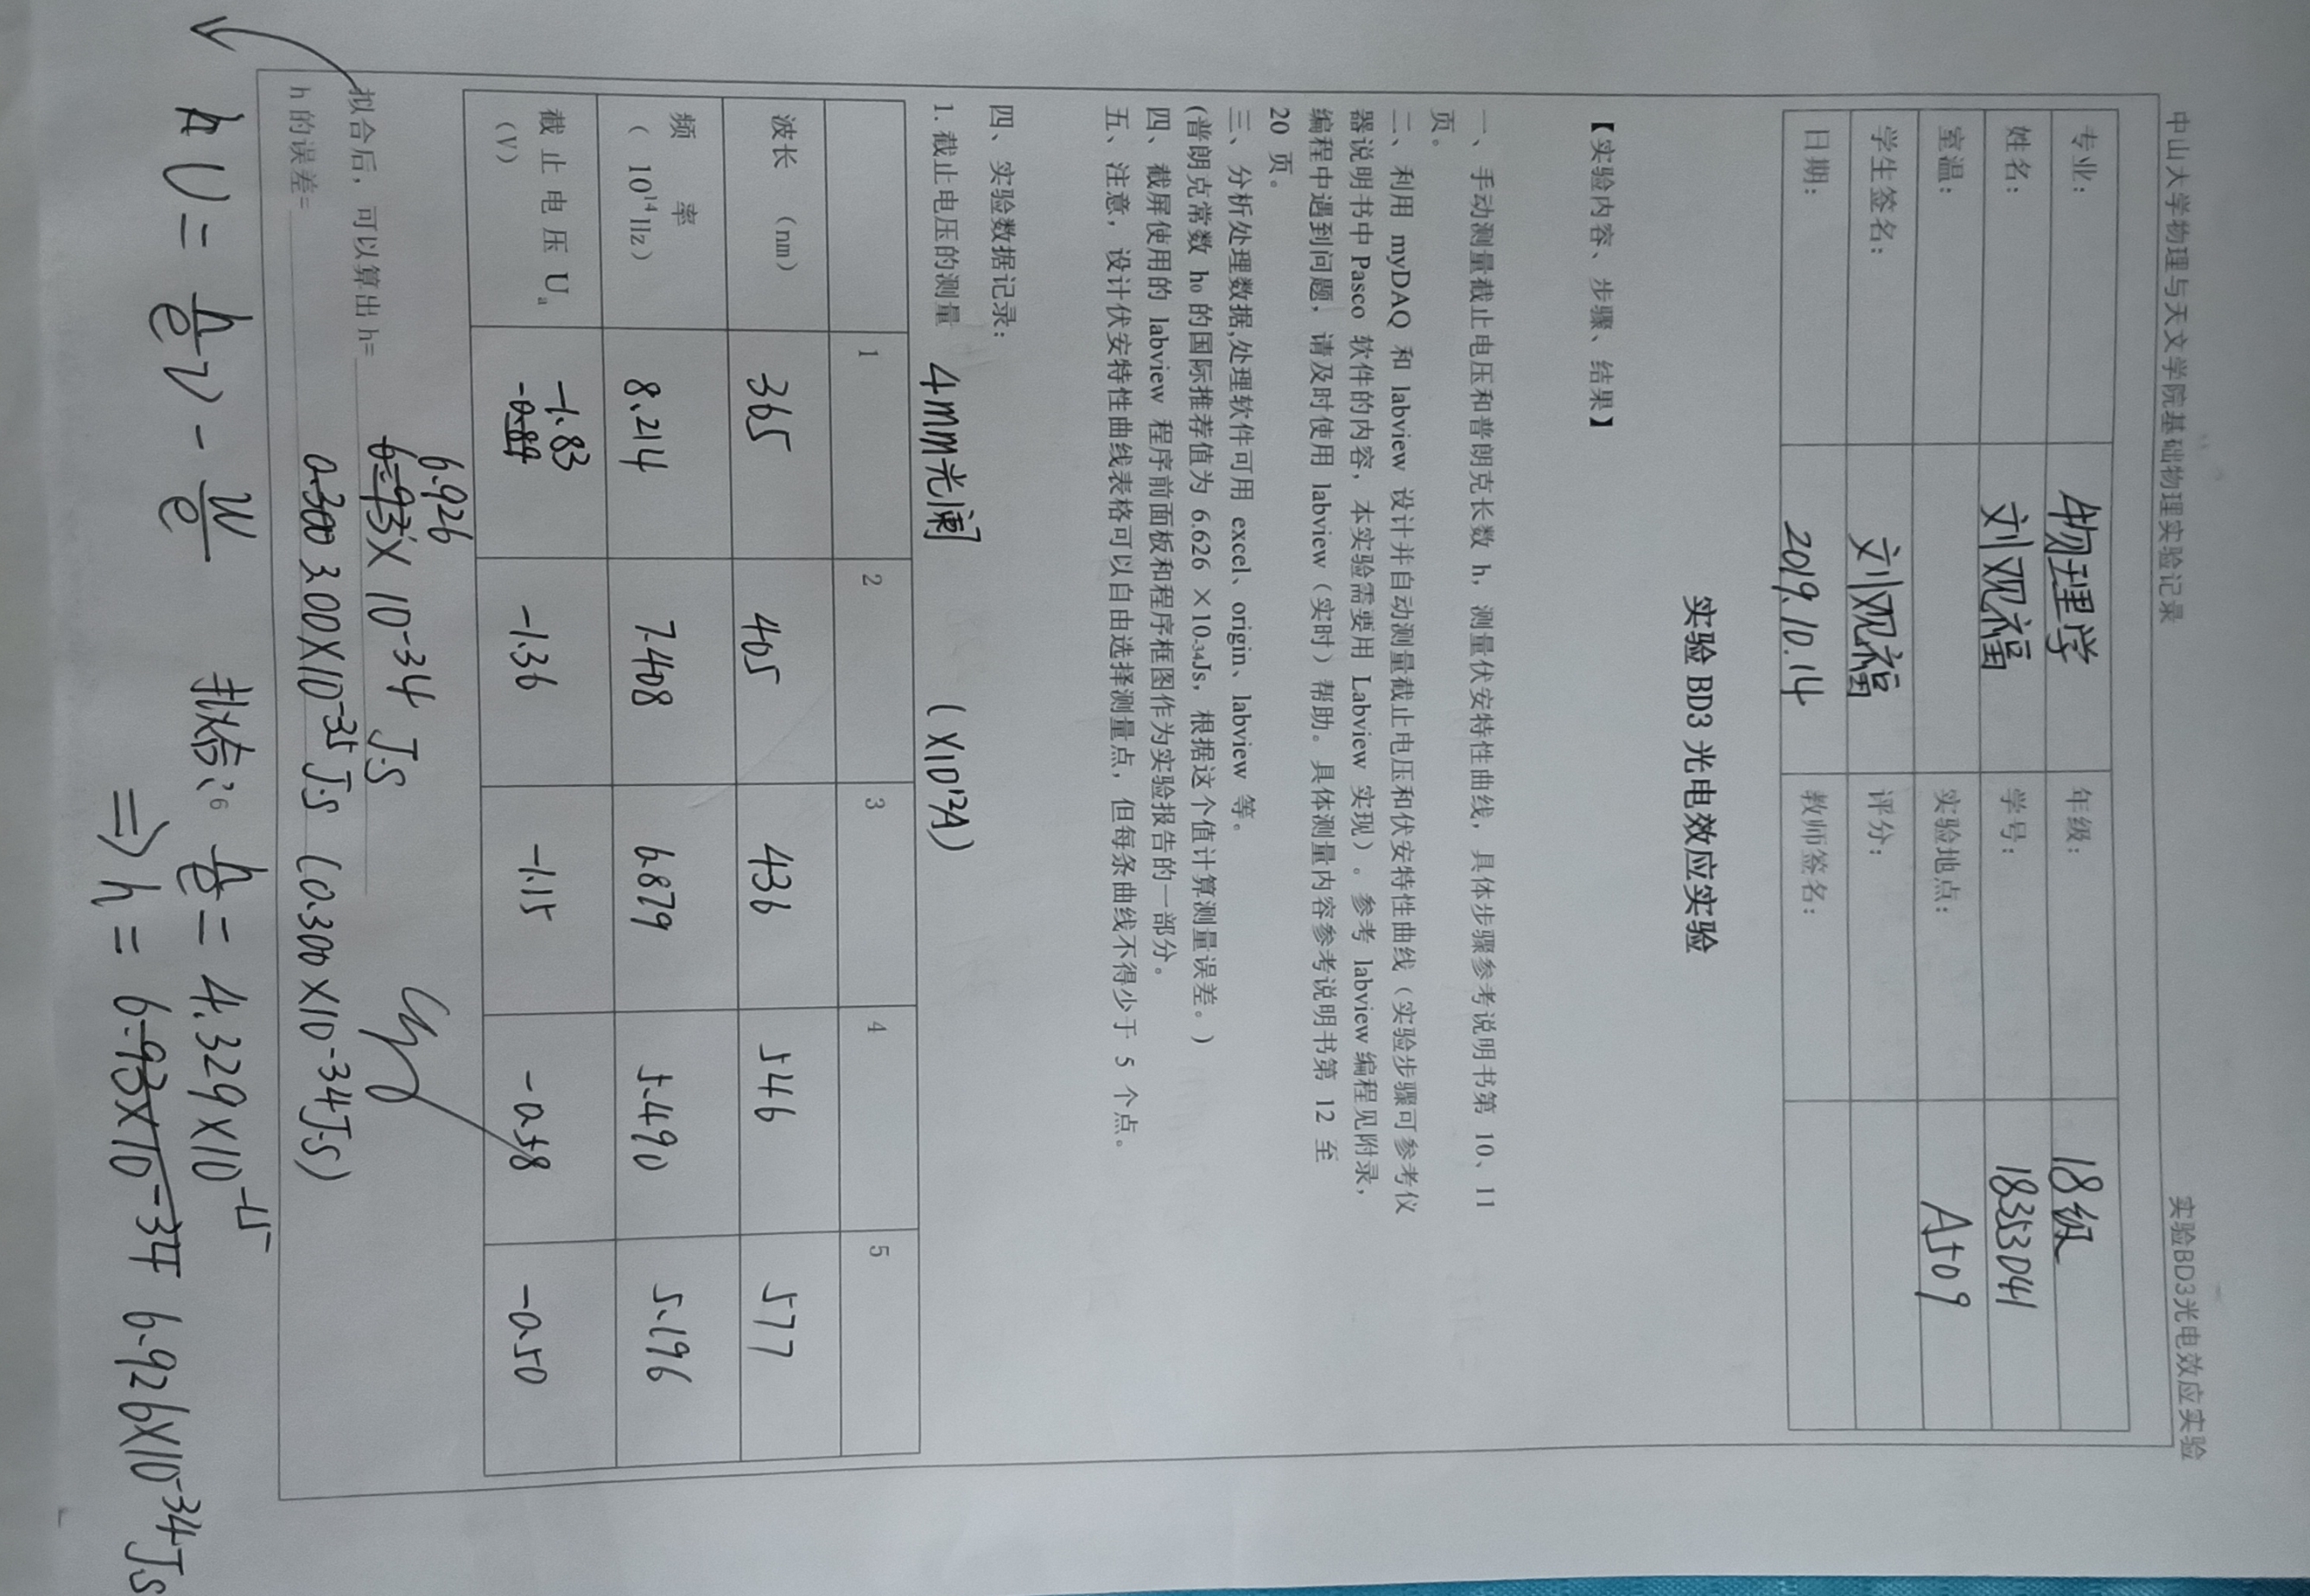 中山大学物理与天文学院基础物理实验记录 实验BD3光电效应实验
专业： 物理学 年级： 18级
姓名： 刘观福 学号： 18353041
室温： 实验地点： A509
学生签名： 刘观福 评分：
日期： 2019.10.14 教师签名：
实验 BD3 光电效应实验
【实验内容、步骤、结果】
一、手动测量截止电压和普朗克长数 h，测量伏安特性曲线，具体步骤参考说明书第 10、11
页。
二、利用 myDAQ 和 labview 设计并自动测量截止电压和伏安特性曲线（实验步骤可参考仪
器说明书中 Pasco 软件的内容，本实验需要用 Labview 实现）。参考 labview 编程见附录，
编程中遇到问题，请及时使用 labview（实时）帮助。具体测量内容参考说明书第 12 至
20 页。
三、分析处理数据,处理软件可用 excel、origin、labview 等。
(普朗克常数 h₀ 的国际推荐值为 6.626 ×10-34Js，根据这个值计算测量误差。)
四、截屏使用的 labview 程序前面板和程序框图作为实验报告的一部分。
五、注意，设计伏安特性曲线表格可以自由选择测量点，但每条曲线不得少于 5 个点。
四、实验数据记录：
1. 截止电压的测量 4mm光阑 (×10¹²A)
1 2 3 4 5
波长 （nm） 365 405 436 546 577
频 率 （ 10¹⁴Hz） 8.214 7.408 6.879 5.490 5.196
截 止 电 压 Uₐ （V） -1.83 -1.36 -1.15 -0.58 -0.50
6.926
拟合后，可以算出 h= 6.93×10⁻³⁴ J·S
h 的误差= 0.300 3.00×10⁻³⁵J·S (0.300×10⁻³⁴J·S)
6
U = h/e ν - W/e
h/e = 4.329×10⁻¹⁵
⇒ h = 6.93×10⁻³⁴ 6.926×10⁻³⁴J·S